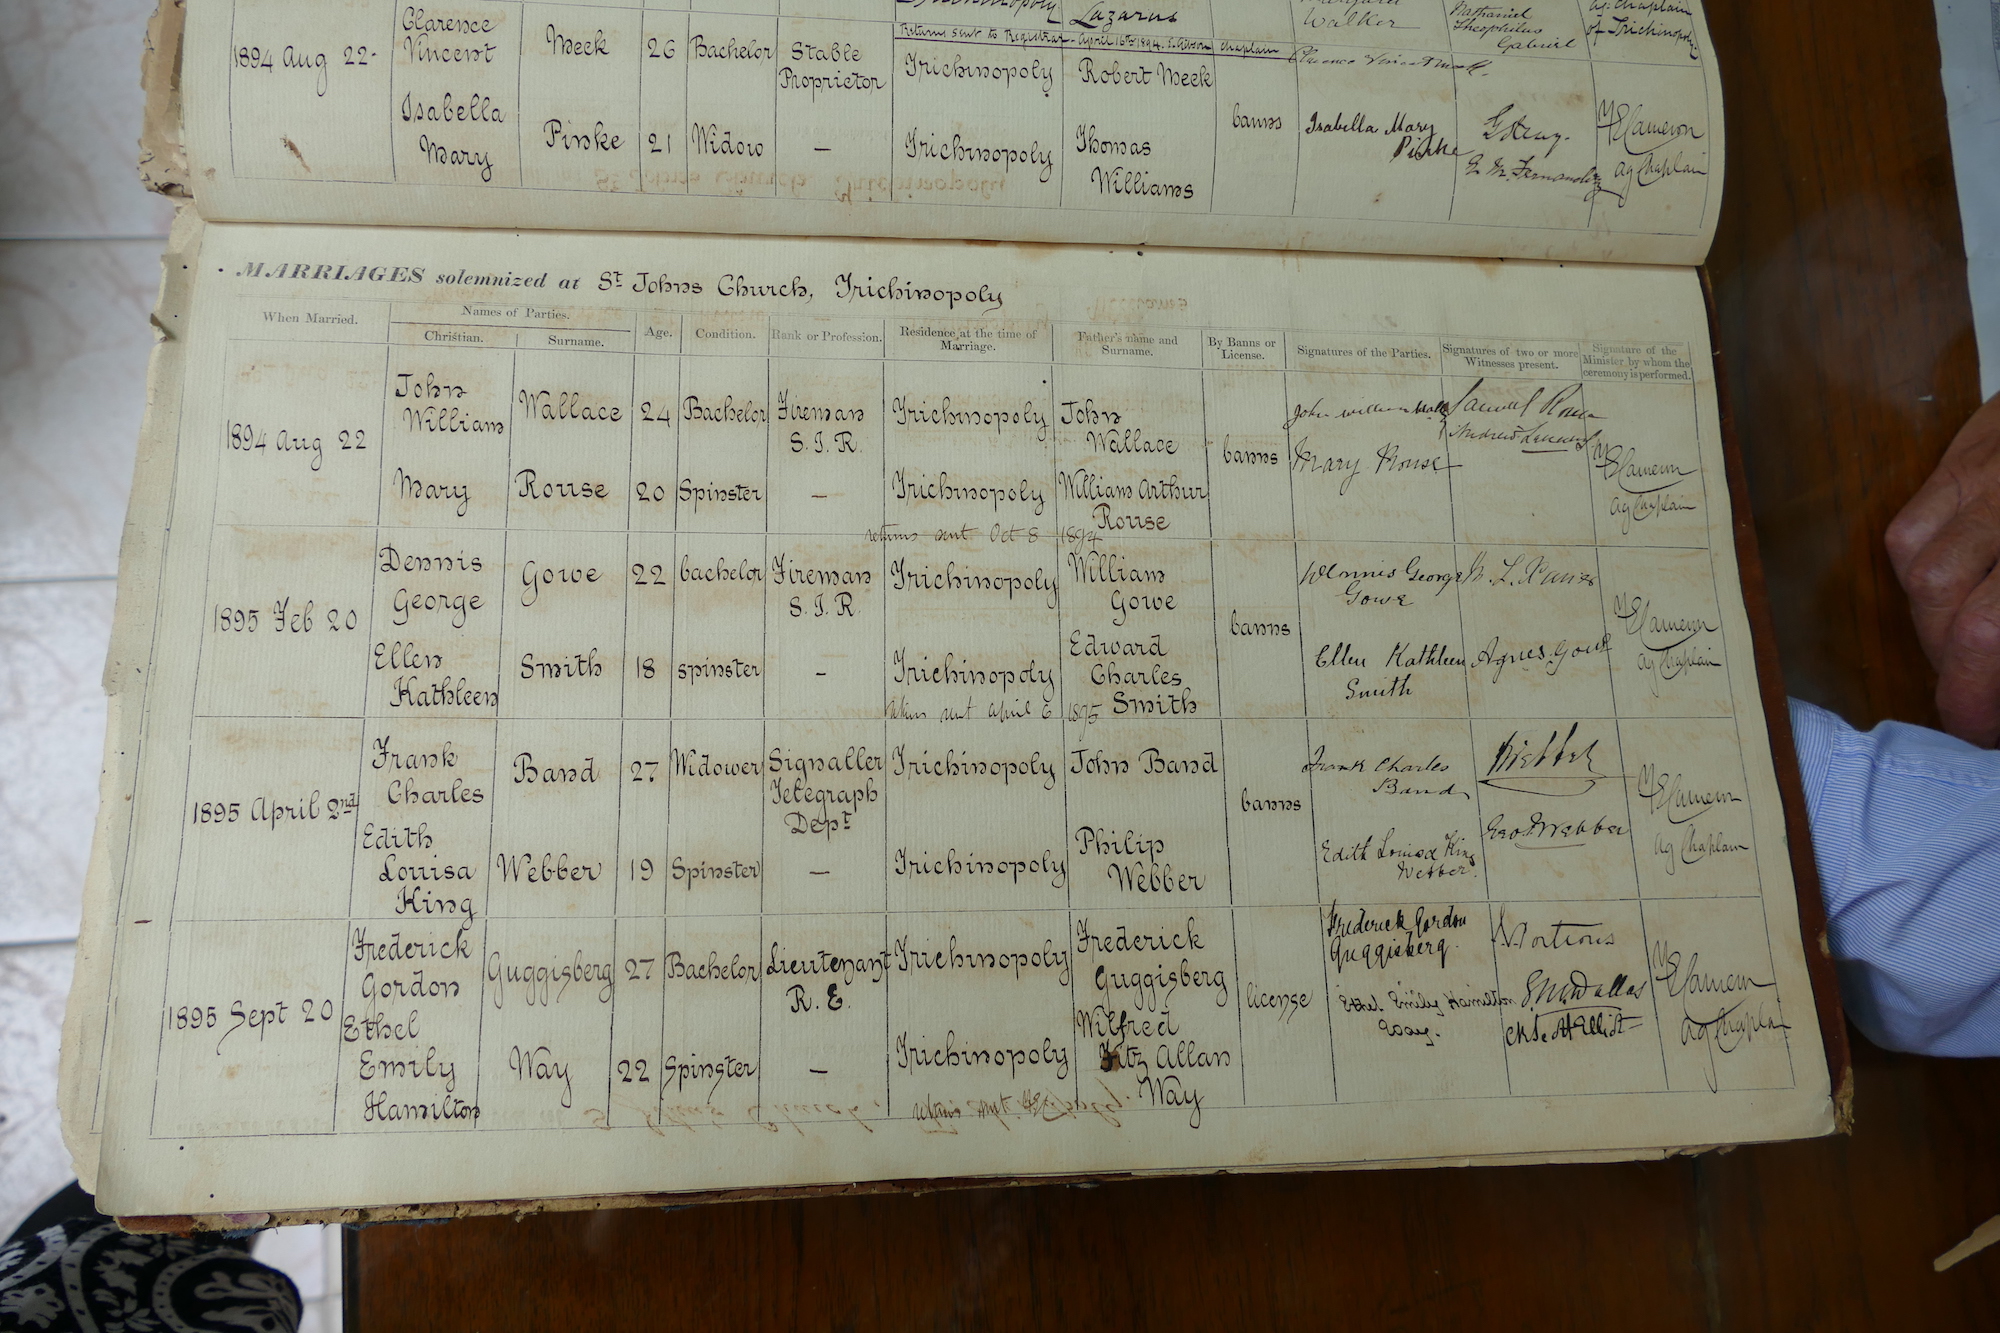 Lazarus
Walker
Nathaniel
Theophilus
Gabriel
ag. Chaplain
of Trichinopoly.
Returns sent to Registrar - April 16th 1894. Chaplain
1894 Aug 22 Clarence Vincent Meek 26 Bachelor Stable Proprietor Trichinopoly Robert Meek
Isabella Mary Pinke 21 Widow — Trichinopoly Thomas Williams banns Isabella Mary Pinke Cameron ag Chaplain
MARRIAGES solemnized at St Johns Church, Trichinopoly
When Married. Names of Parties. Christian. Surname. Age. Condition. Rank or Profession. Residence at the time of Marriage. Father's name and Surname. By Banns or License. Signatures of the Parties. Signatures of two or more Witnesses present. Signature of the Minister by whom the ceremony is performed.
1894 Aug 22 John William Wallace 24 Bachelor Fireman S. I. R. Trichinopoly John Wallace banns John William
Mary Rouse 20 Spinster — Trichinopoly William Arthur Rouse Mary Rouse Cameron ag Chaplain
returns sent Oct 8 1894
1895 Feb 20 Dennis George Gowe 22 bachelor Fireman S. I. R. Trichinopoly William Gowe banns Dennis George Gowe
Ellen Kathleen Smith 18 spinster — Trichinopoly Edward Charles Smith Ellen Kathleen Smith Agnes Gowe Cameron ag Chaplain
returns sent April 6 1895
1895 April 2nd Frank Charles Band 27 Widower Signaller Telegraph Dept Trichinopoly John Band banns Frank Charles Band
Edith Louisa King Webber 19 Spinster — Trichinopoly Philip Webber Edith Louisa King Webber Geo Webber Cameron ag Chaplain
1895 Sept 20 Frederick Gordon Guggisberg 27 Bachelor Lieutenant R. E. Trichinopoly Frederick Guggisberg license Frederick Gordon Guggisberg.
Ethel Emily Hamilton Way 22 Spinster — Trichinopoly Wilfred Fitz Allan Way Ethel Emily Hamilton Way. Cameron ag Chaplain
returns sent